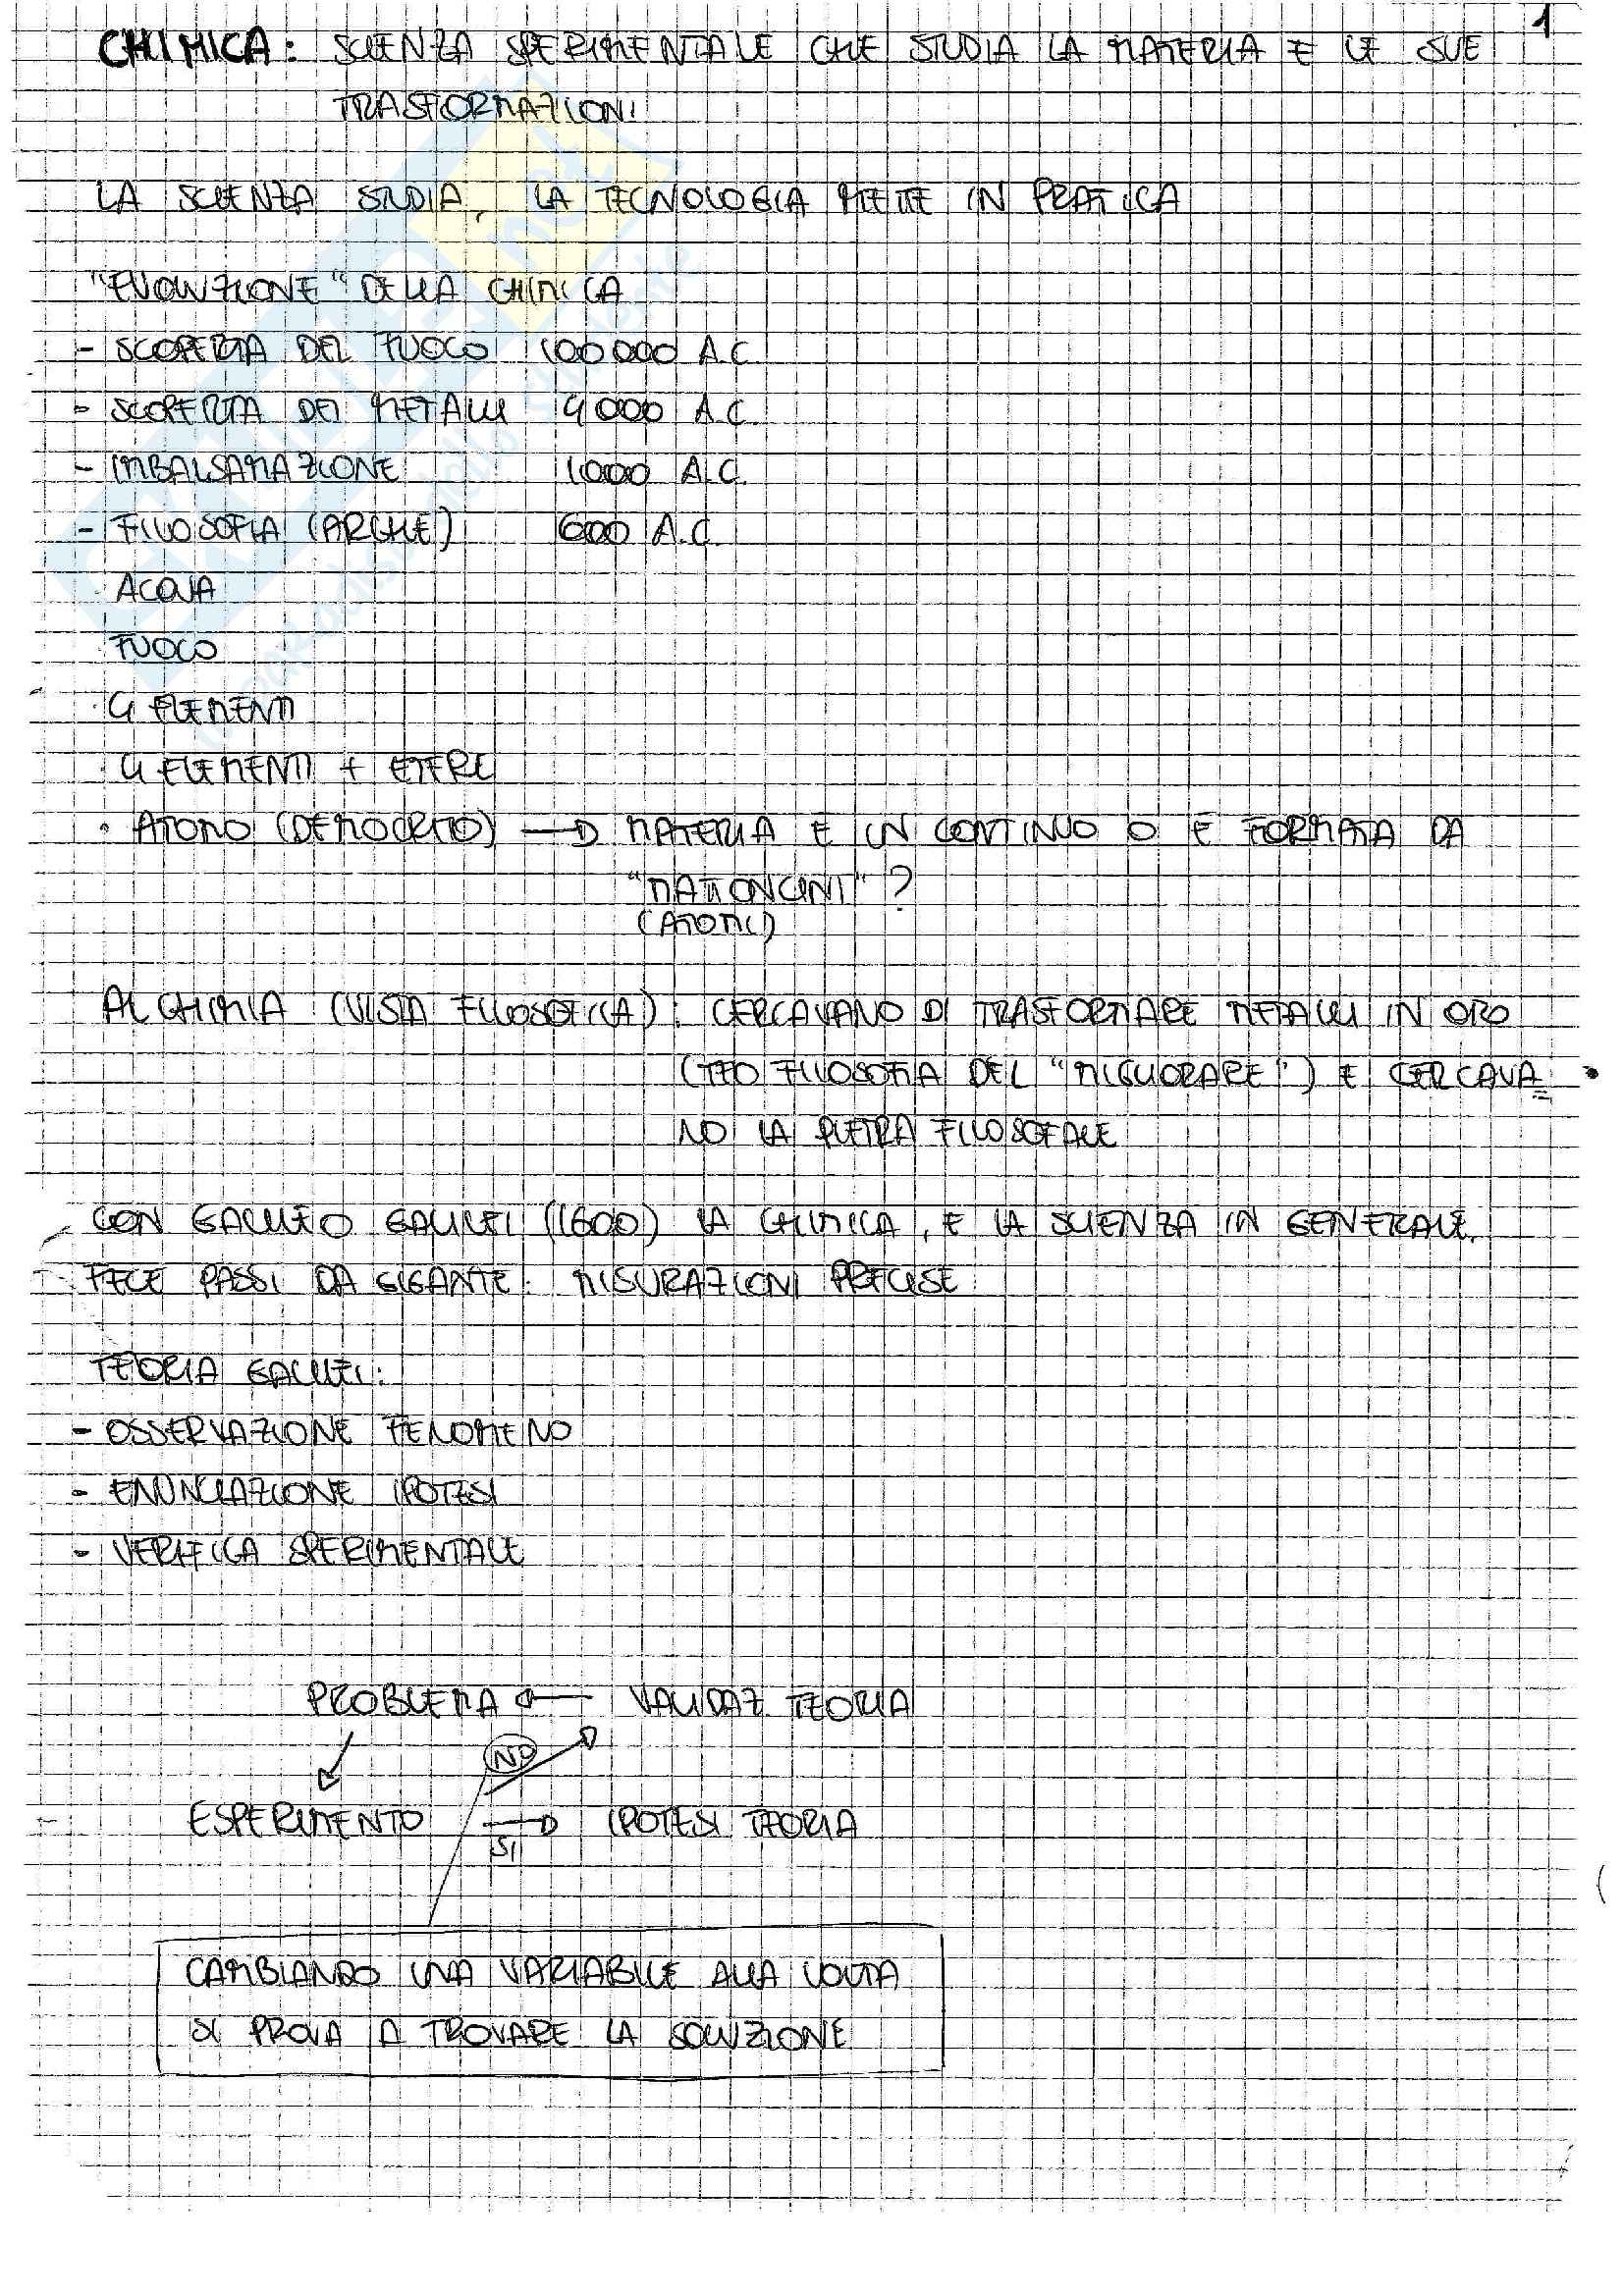 1
CHIMICA: SCIENZA SPERIMENTALE CHE STUDIA LA MATERIA E LE SUE
TRASFORMAZIONI
LA SCIENZA STUDIA, LA TECNOLOGIA METTE IN PRATICA
"EVOLUZIONE" DELLA CHIMICA
- SCOPERTA DEL FUOCO 100000 A.C.
- SCOPERTA DEI METALLI 4000 A.C.
- IMBALSAMAZIONE 1000 A.C.
- FILOSOFIA (ARCHE) 600 A.C.
· ACQUA
· FUOCO
· 4 ELEMENTI
· 4 ELEMENTI + ETERE
· ATOMO (DEMOCRITO) → MATERIA E UN CONTINUO O E FORMATA DA
"MATTONCINI"?
(ATOMI)
ALCHIMIA (VISTA FILOSOFICA): CERCAVANO DI TRASFORMARE METALLI IN ORO
FILOSOFIA DEL "MIGLIORARE") E CERCAVA
NO LA PIETRA FILOSOFALE
CON GALILEO GALILEI (1600) LA CHIMICA, E LA SCIENZA IN GENERALE,
FECE PASSI DA GIGANTE: MISURAZIONI PRECISE
TEORIA GALILEI:
- OSSERVAZIONE FENOMENO
- ENUNCIAZIONE IPOTESI
- VERIFICA SPERIMENTALE
PROBLEMA ← VALIDAZ. TEORIA
NO
ESPERIMENTO → IPOTESI TEORIA
SI
CAMBIANDO UNA VARIABILE ALLA VOLTA
SI PROVA A TROVARE LA SOLUZIONE